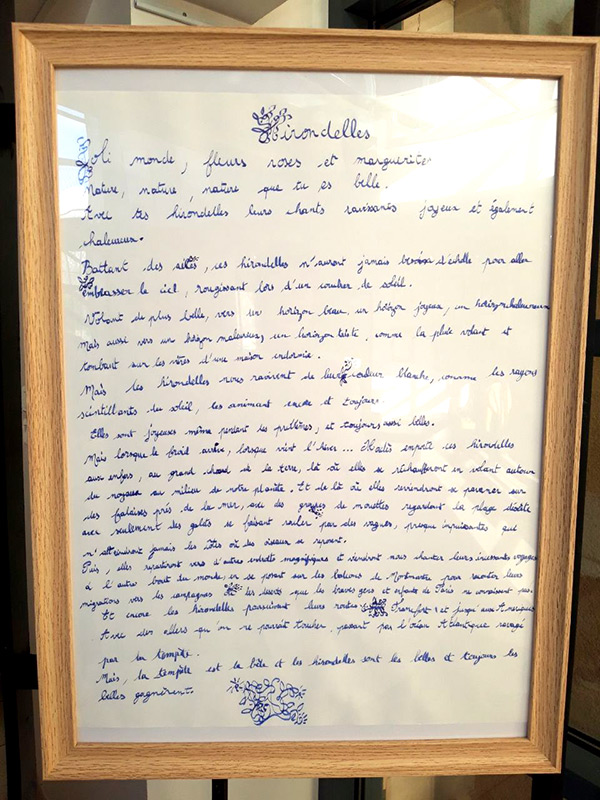 Hirondelles
Joli monde, fleurs roses et marguerites
Nature, nature, nature que tu es belle.
Avec tes hirondelles leurs chants ravissants joyeux et également
chaleureux.
Battant des ailes, ces hirondelles n'auront jamais besoin d'échelle pour aller
embrasser le ciel, rougissant lors d'un coucher de soleil.
Volant de plus belle, vers un horizon beau, un horizon joyeux, un horizon chaleureux
Mais aussi vers un horizon malheureux, un horizon triste, comme la pluie volant et
tombant sur les vitres d'une maison endormie.
Mais les hirondelles nous ravirent de leur couleur blanche, comme les rayons
scintillants du soleil, les animent encore et toujours
Elles sont joyeuses même pendant les problèmes, et toujours aussi belles.
Mais lorsque le froid arrive, lorsque vient l'hiver... Hadès emporte ces hirondelles
aux enfers, au grand chaud de la terre, là où elles se réchaufferont en volant autour
du noyau au milieu de notre planète. Et de là où elles reviendront se pavaner sur
des falaises près de la mer, avec des groupes de mouettes regardant la plage déserte
avec seulement des galets se faisant rouler par des vagues, presque impuissantes qui
n'atteindront jamais les côtes où les oiseaux se reposent.
Puis, elles repartiront vers d'autres endroits magnifiques et viendront nous chanter leurs incessants voyages
à l'autre bout du monde, en se posant sur les balcons de Montmartre pour raconter leurs
migrations vers les campagnes les que les braves gens et enfants de Paris ne connaissent pas.
Et encore les hirondelles poursuivant leurs routes Francfort et jusqu'aux Amériques
Avec des ailes qu'on ne pourrait toucher, passant par l'océan Atlantique ravagé
par la tempête.
Mais la tempête est la bête et les hirondelles sont les belles et toujours les
belles gagnèrent.